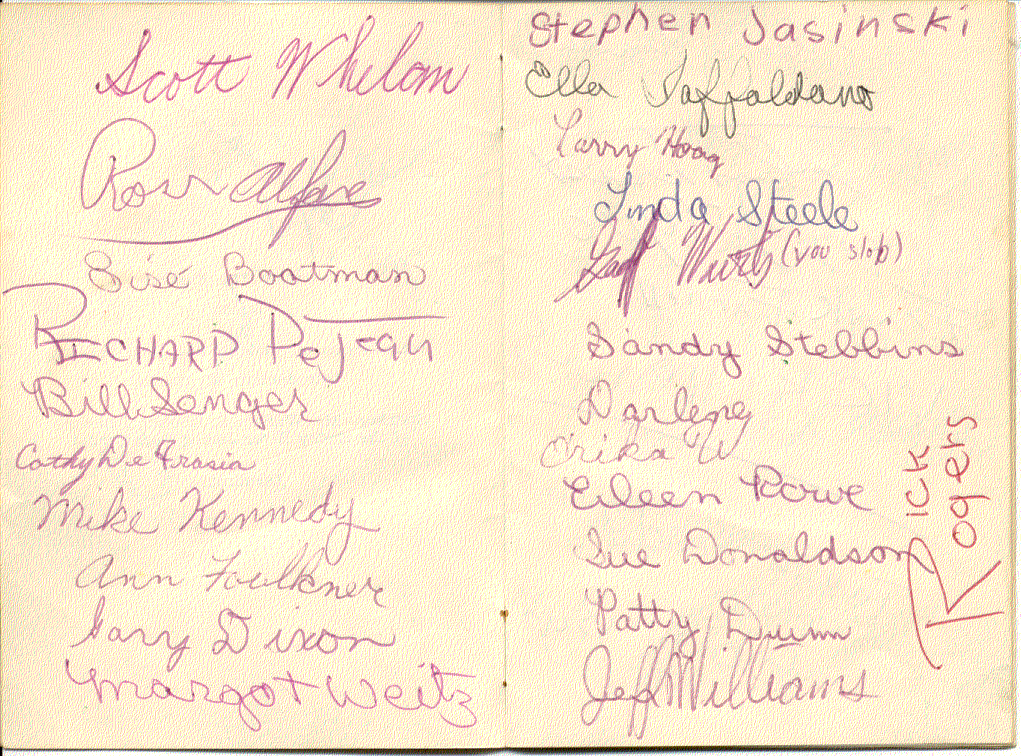 Scott Whelan
Ross
Boatman
RICHARD DeJean
Bill Senger
Cathy DeFrasia
Mike Kennedy
Ann Faulkner
Gary Dixon
Margot Weitz
Stephen Jasinski
Ella Taffaldano
Larry Hoag
Linda Steele
(you slob)
Sandy Stebbins
Darlene
Erika W
Eileen Rowe
Sue Donaldson
Patty Dunn
Jeff Williams
Rick
Rogers